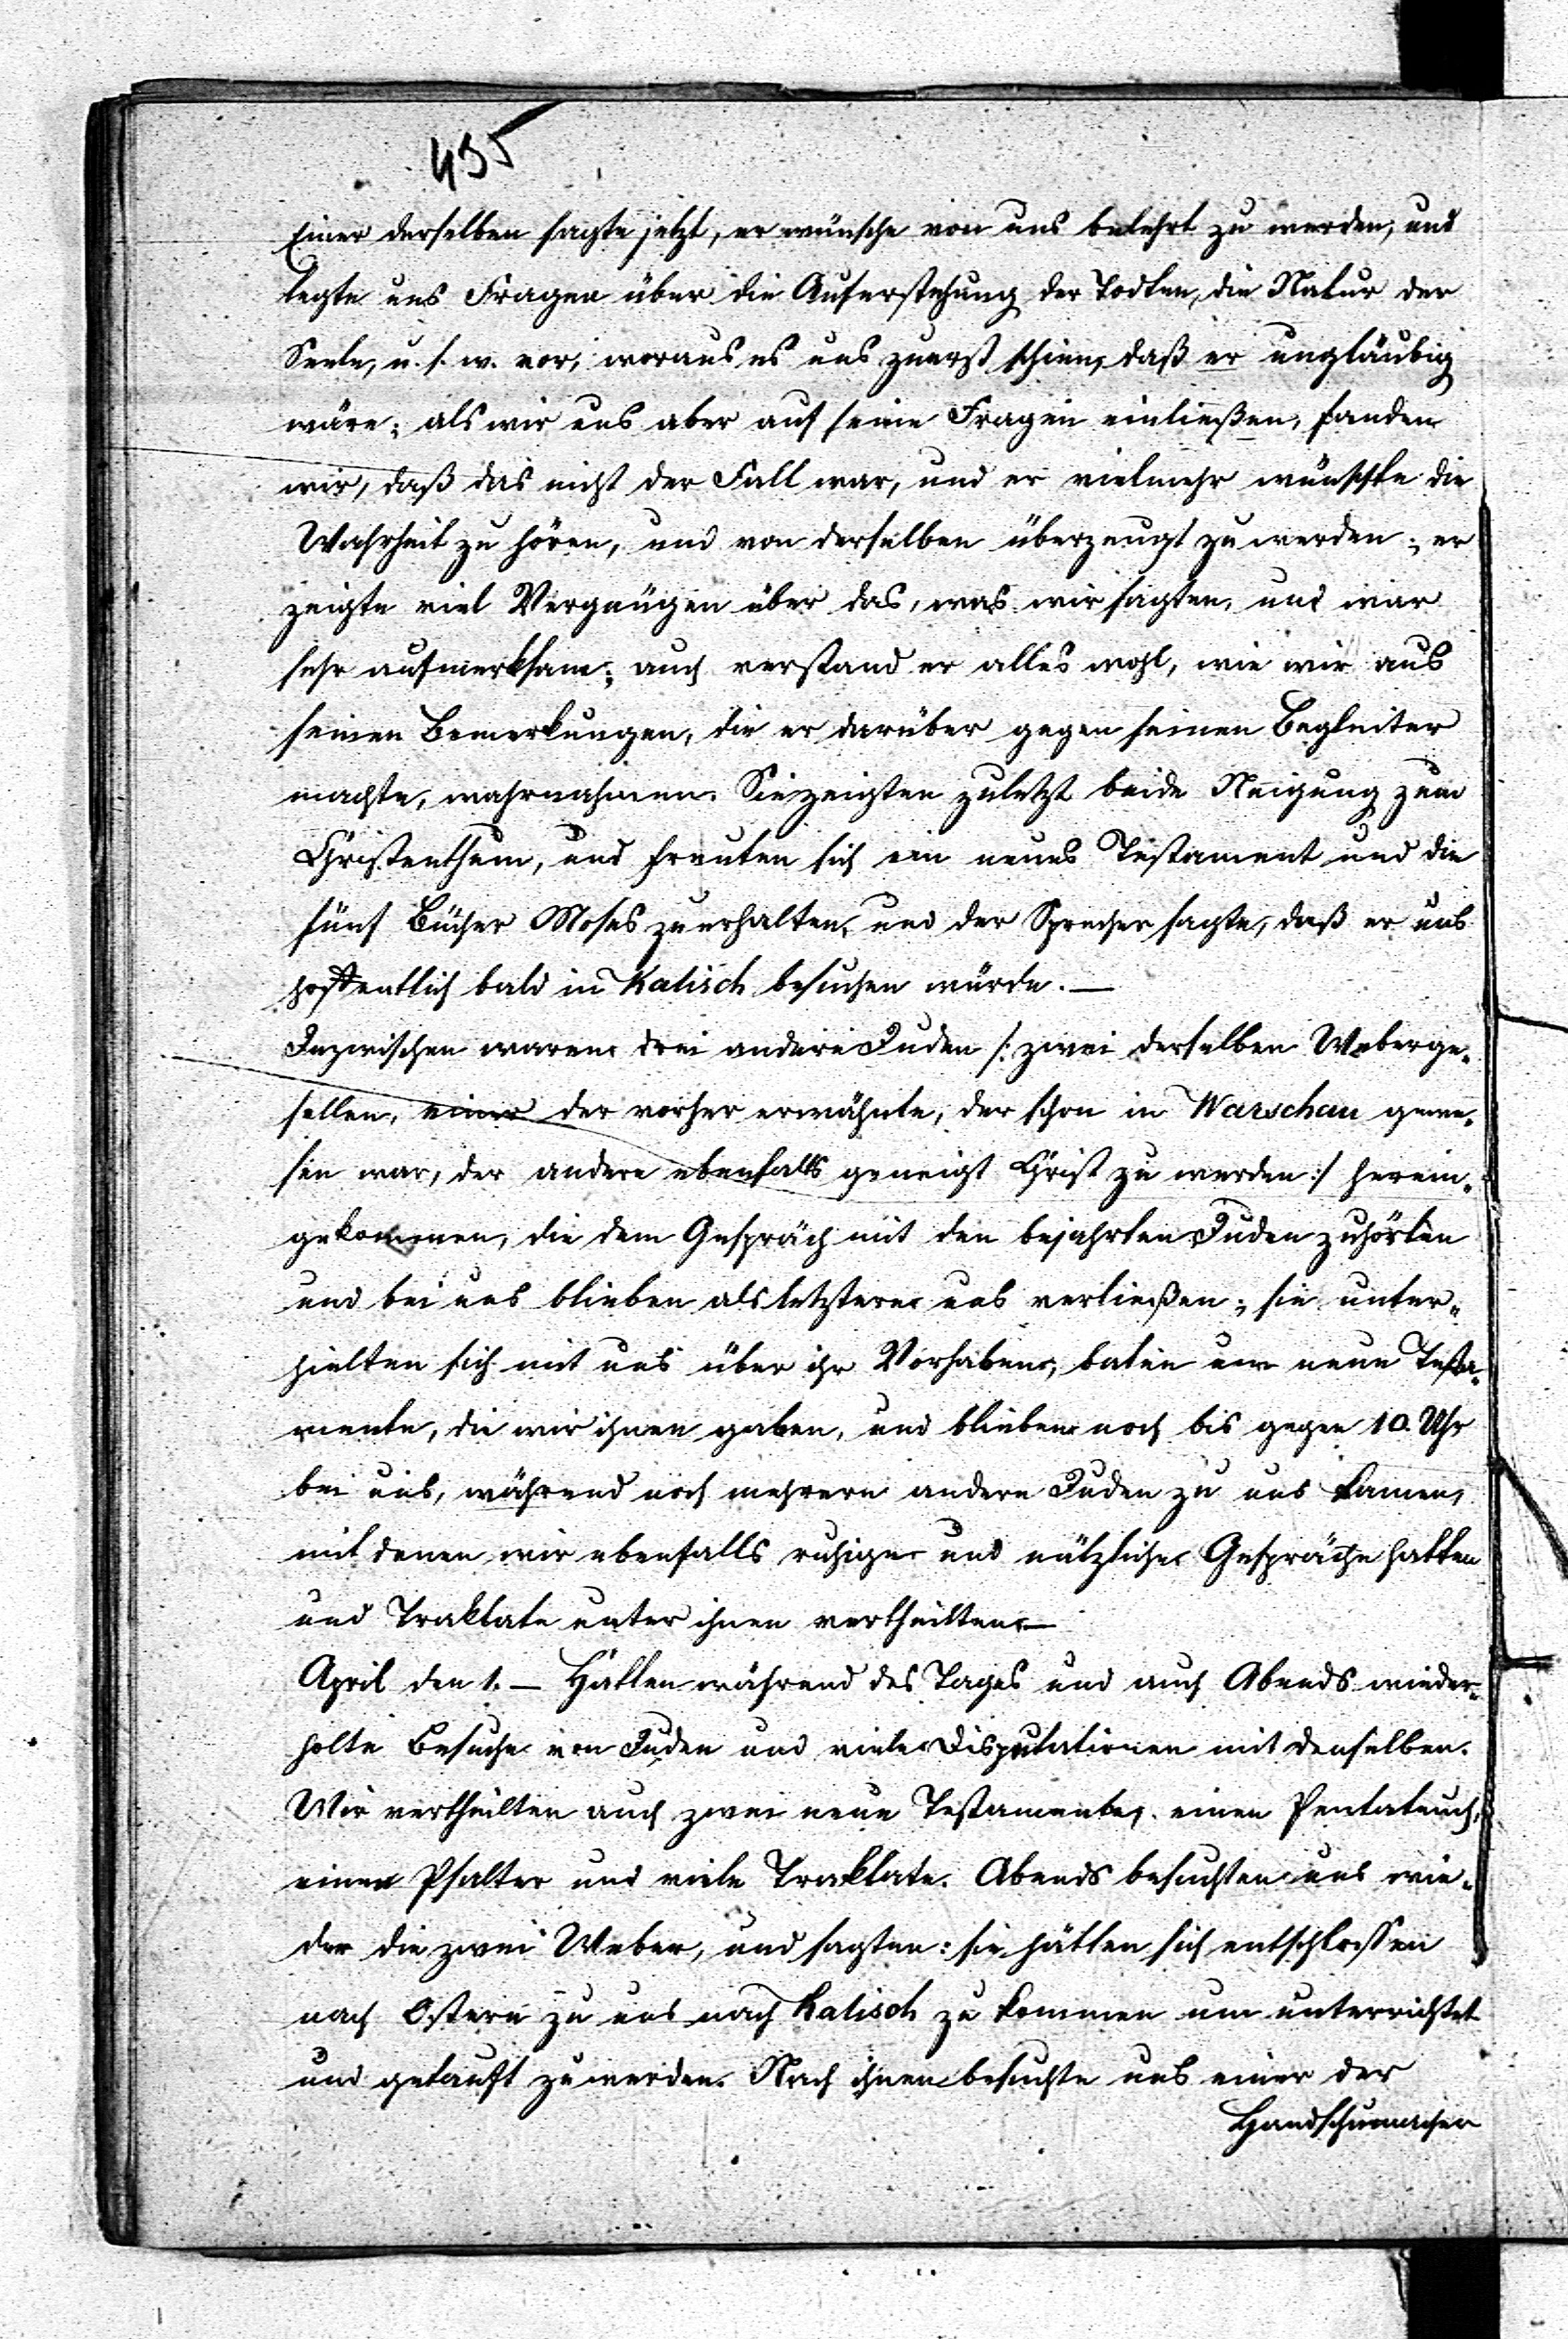 435
Einer derselben sagte jetzt, er wünsche von uns belehrt zu werden, und
legte uns Fragen über die Auferstehung der Todten, die Natur der
Seele, u. s. w. vor, woraus es uns zuerst schien, daß er ungläubig
wäre; als wir uns aber auf seine Fragen einließen, fanden
wir, daß das nicht der Fall war, und er vielmehr wünschte die
Wahrheit zu hören, und von derselben überzeugt zu werden; er
zeigte viel Vergnügen über das, was wir sagten, und war
sehr aufmerksam; auch verstand er alles wohl, wie wir aus
seinen Bemerkungen, die er darüber gegen seinen Begleiter
machte, wahrnahmen. Sie zeigten zuletzt beide Neigung zum
Christenthum, und freuten sich ein neues Testament und die
fünf Bücher Moses zu erhalten, und der Sprecher sagte, daß er uns
hoffentlich bald in Kalisch besuchen würde. —
Inzwischen waren drei andere Juden /: zwei derselben Weberge„
sellen, einer der vorher erwähnte, der schon in Warschau gewe„
sen war, der andere ebenfalls geneigt Christ zu werden :/ herein„
gekommen, die dem Gespräch mit den bejahrten Juden zuhörten
und bei uns blieben als letztere uns verließen; sie unter„
hielten sich mit uns über ihr Vorhaben, baten um neue Testa„
mente, die wir ihnen gaben, und blieben noch bis gegen 10. Uhr
bei uns, während noch mehrere andere Juden zu uns kamen,
mit denen wir ebenfalls ruhige und nützliche Gespräche hatten
und Traktate unter ihnen vertheilten. —
April den 1. — Hatten während des Tages und auch Abends wieder„
holte Besuche von Juden und viele Disputationen mit denselben.
Wir vertheilten auch zwei neue Testamente, einen Pentateuch,
einen Psalter und viele Traktate. Abends besuchten uns wie„
der die zwei Weber, und sagten: sie hätten sich entschlossen
nach Ostern zu uns nach Kalisch zu kommen um unterrichtet
und getauft zu werden. Nach ihnen besuchte uns einer der
Handschumacher